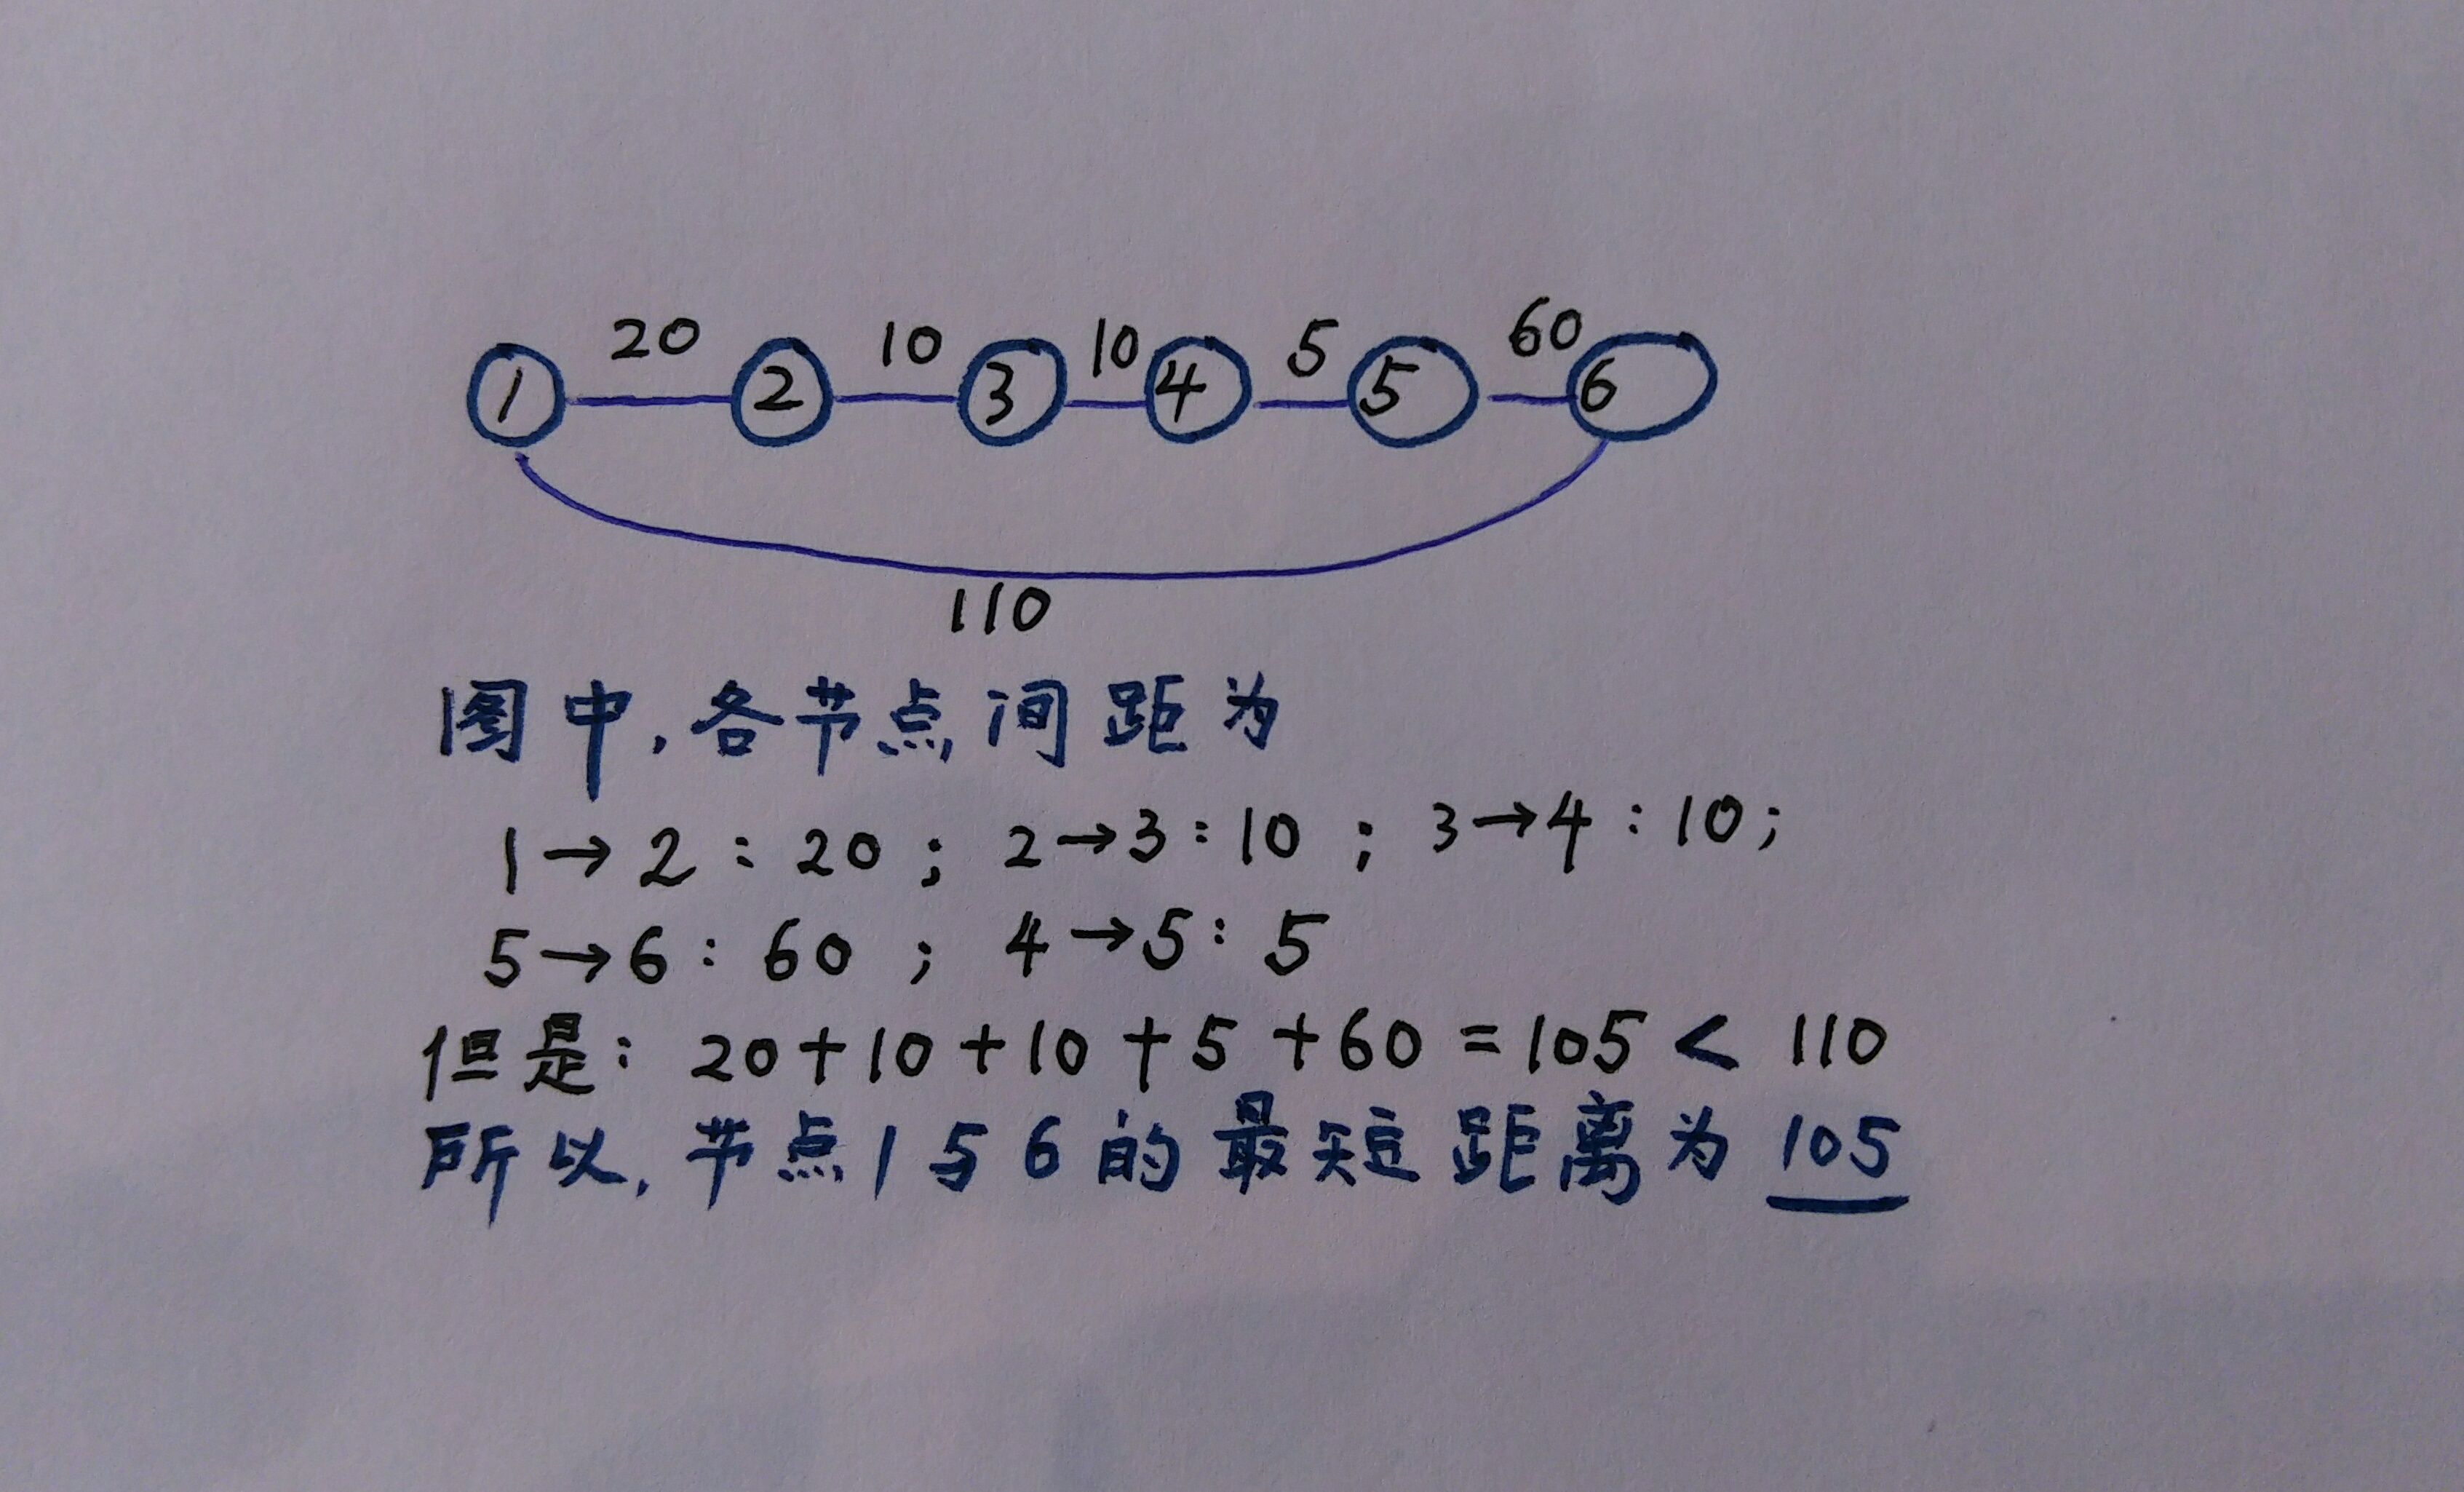 20 10 10 5 60
1 2 3 4 5 6
110
图中,各节点间距为
1→2:20;2→3:10;3→4:10;
5→6:60;4→5:5
但是:20+10+10+5+60=105<110
所以,节点1与6的最短距离为105